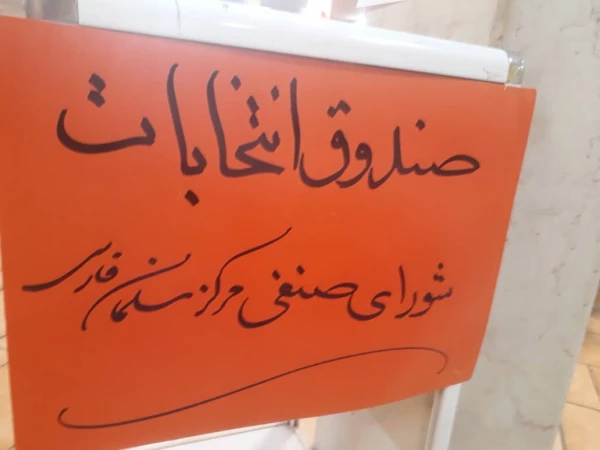 صندوق انتخابات
شورای صنفی مرکز سلمان فارسی